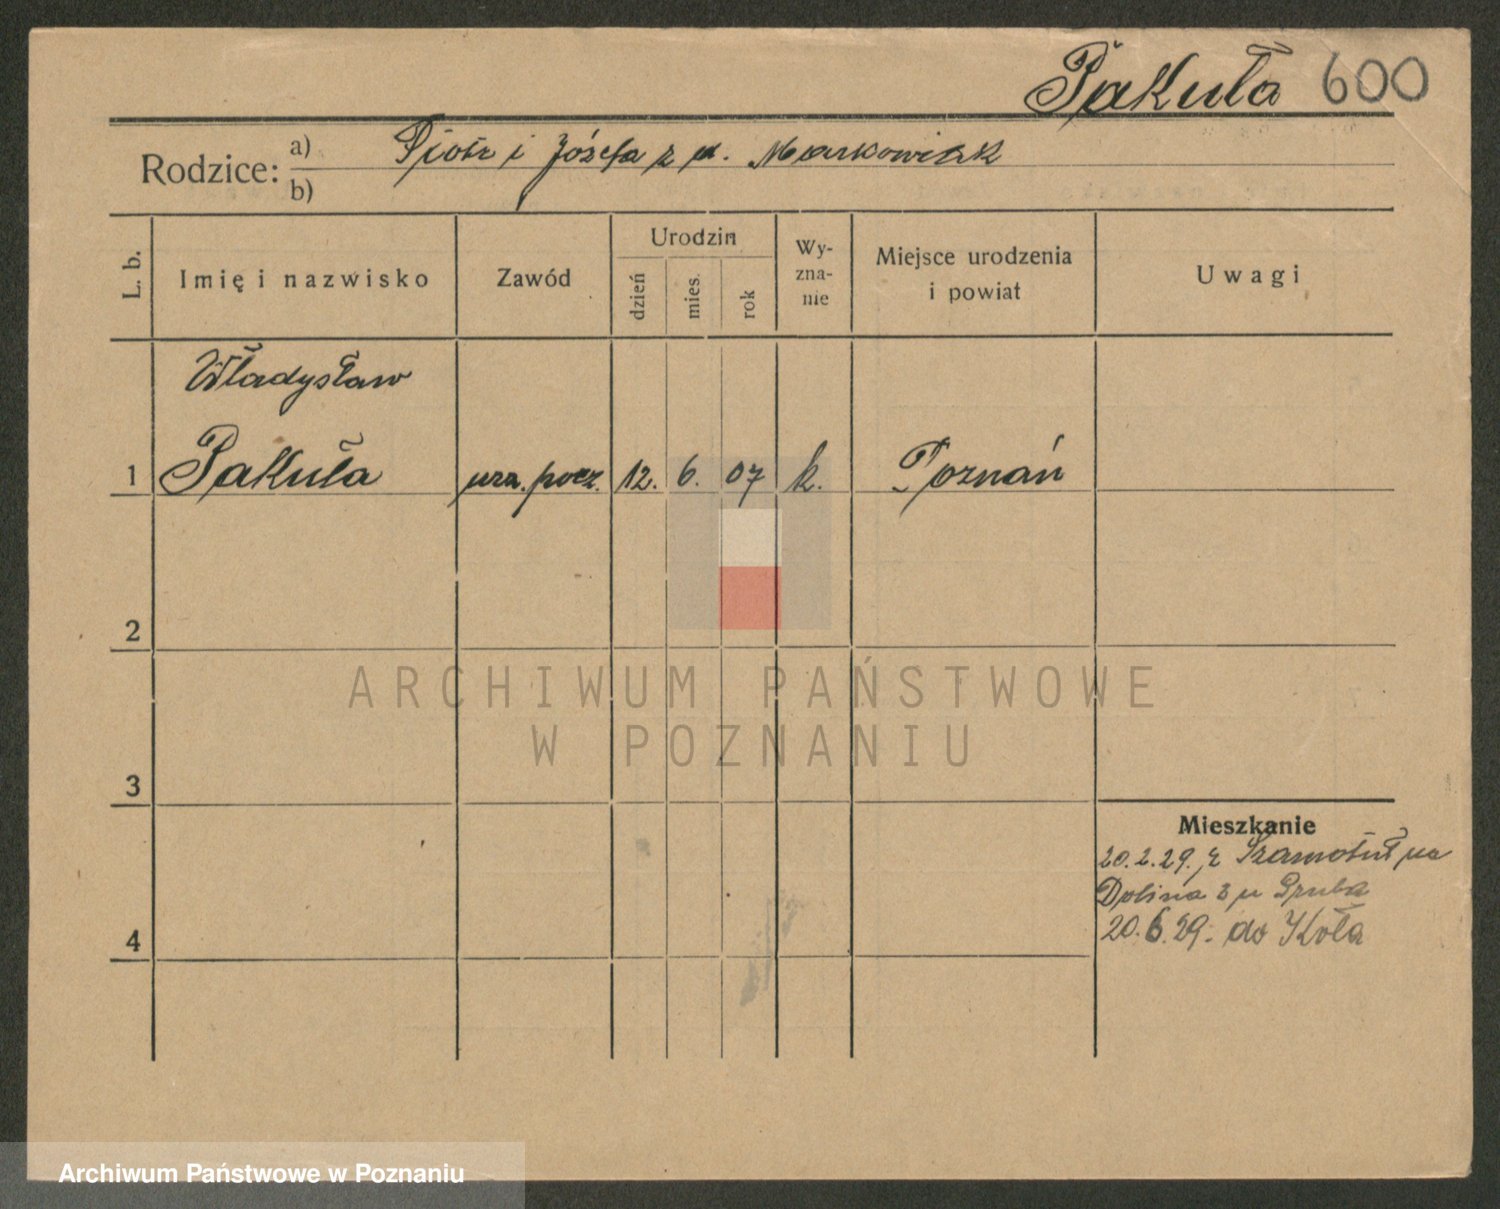 Pakuła 600
Rodzice: a) Piotr i Józefa z d. Markowiak
b)
L. b.
Imię i nazwisko
Zawód
Urodzin
dzień
mies.
rok
Wy-
zna-
nie
Miejsce urodzenia
i powiat
Uwagi
Władysław
1 Pakuła urz. pocz. 12. 6. 07 k. Poznań
2
ARCHIWUM PAŃSTWOWE
W POZNANIU
3
Mieszkanie
20.2.29. z Szamotuł na
Dolina 3 u
4
20.6.29. do Koła
Archiwum Państwowe w Poznaniu